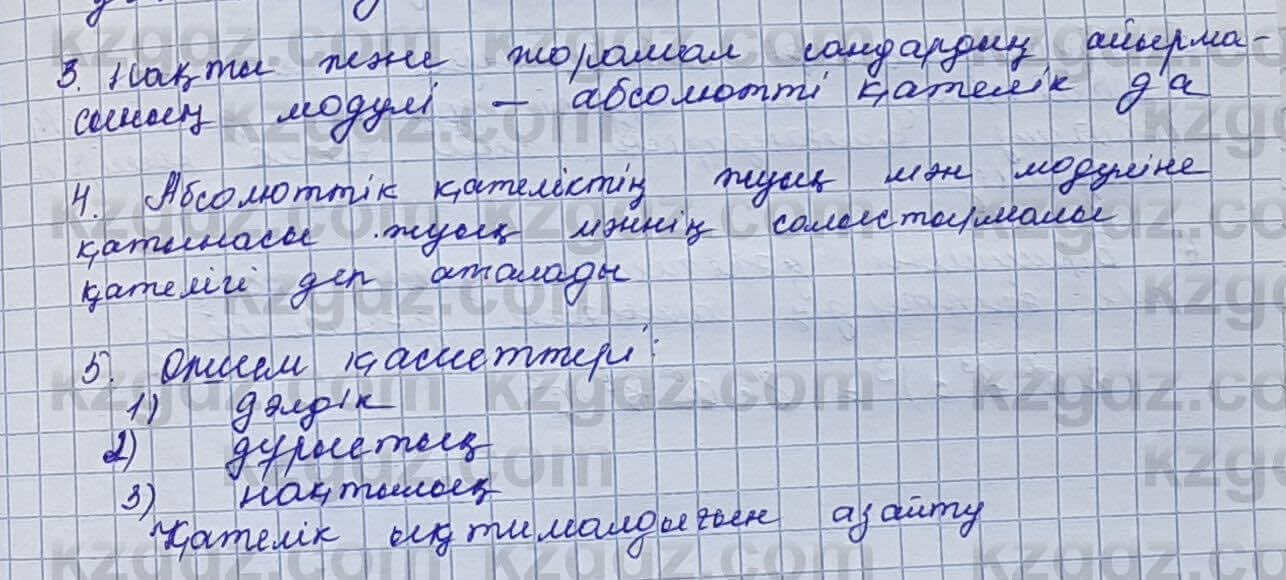 3. Нақты және жорамал сандардың айырма-
сының модулі – абсолютті қателік да
4. Абсолюттік қателіктің жуық мән модуліне
қатынасы жуық мәннің салыстырмалы
қателігі деп аталады
5. Өлшем қасиеттері:
1) дәлдік
2) дұрыстық
3) нақтылық
Қателік ықтималдығын азайту